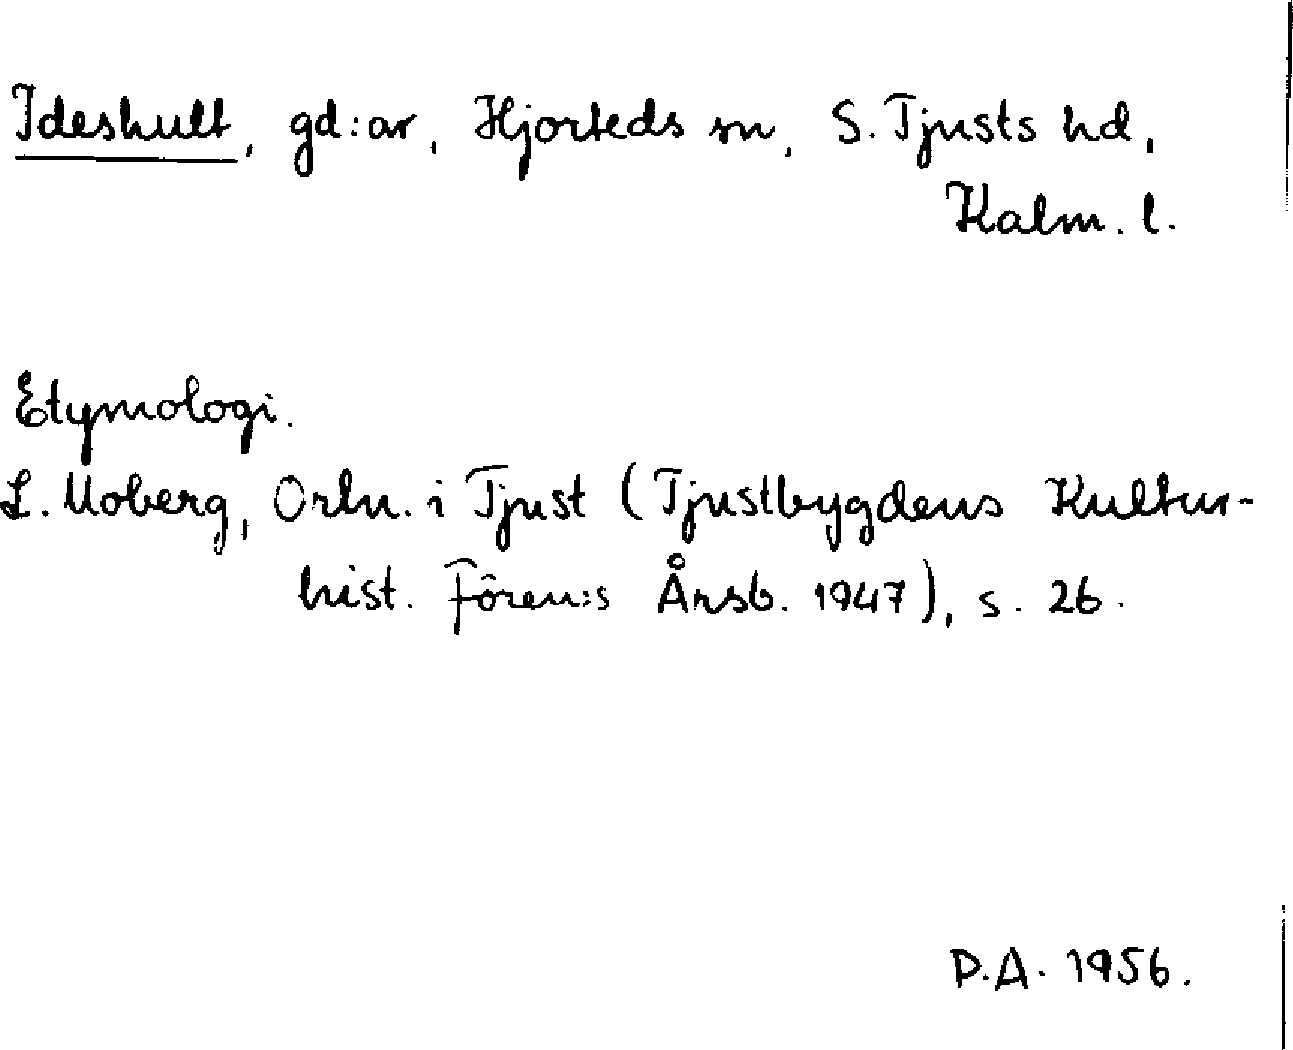 Ideshult, gd:ar, Hjorteds sn, S. Tjusts hd,
Kalm. l.
Etymologi.
L. Moberg, Ortn. i Tjust (Tjustbygdens Kultur-
hist. Fören:s Årsb. 1947), s. 26.
D.A. 1956.